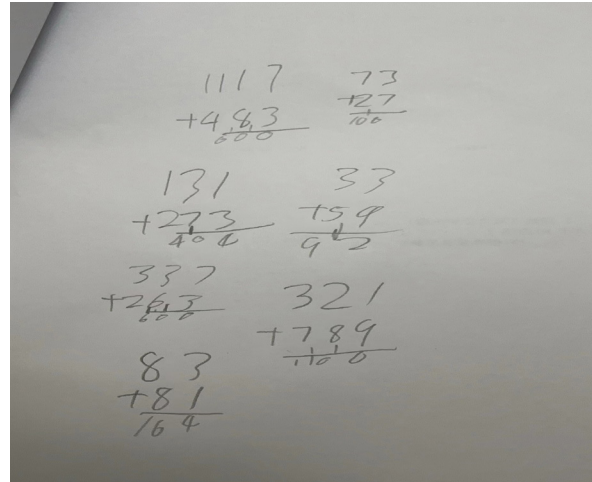 1117
+483
600
73
+27
100
131
+273
404
33
+59
92
337
+263
600
321
+789
1100
83
+81
164